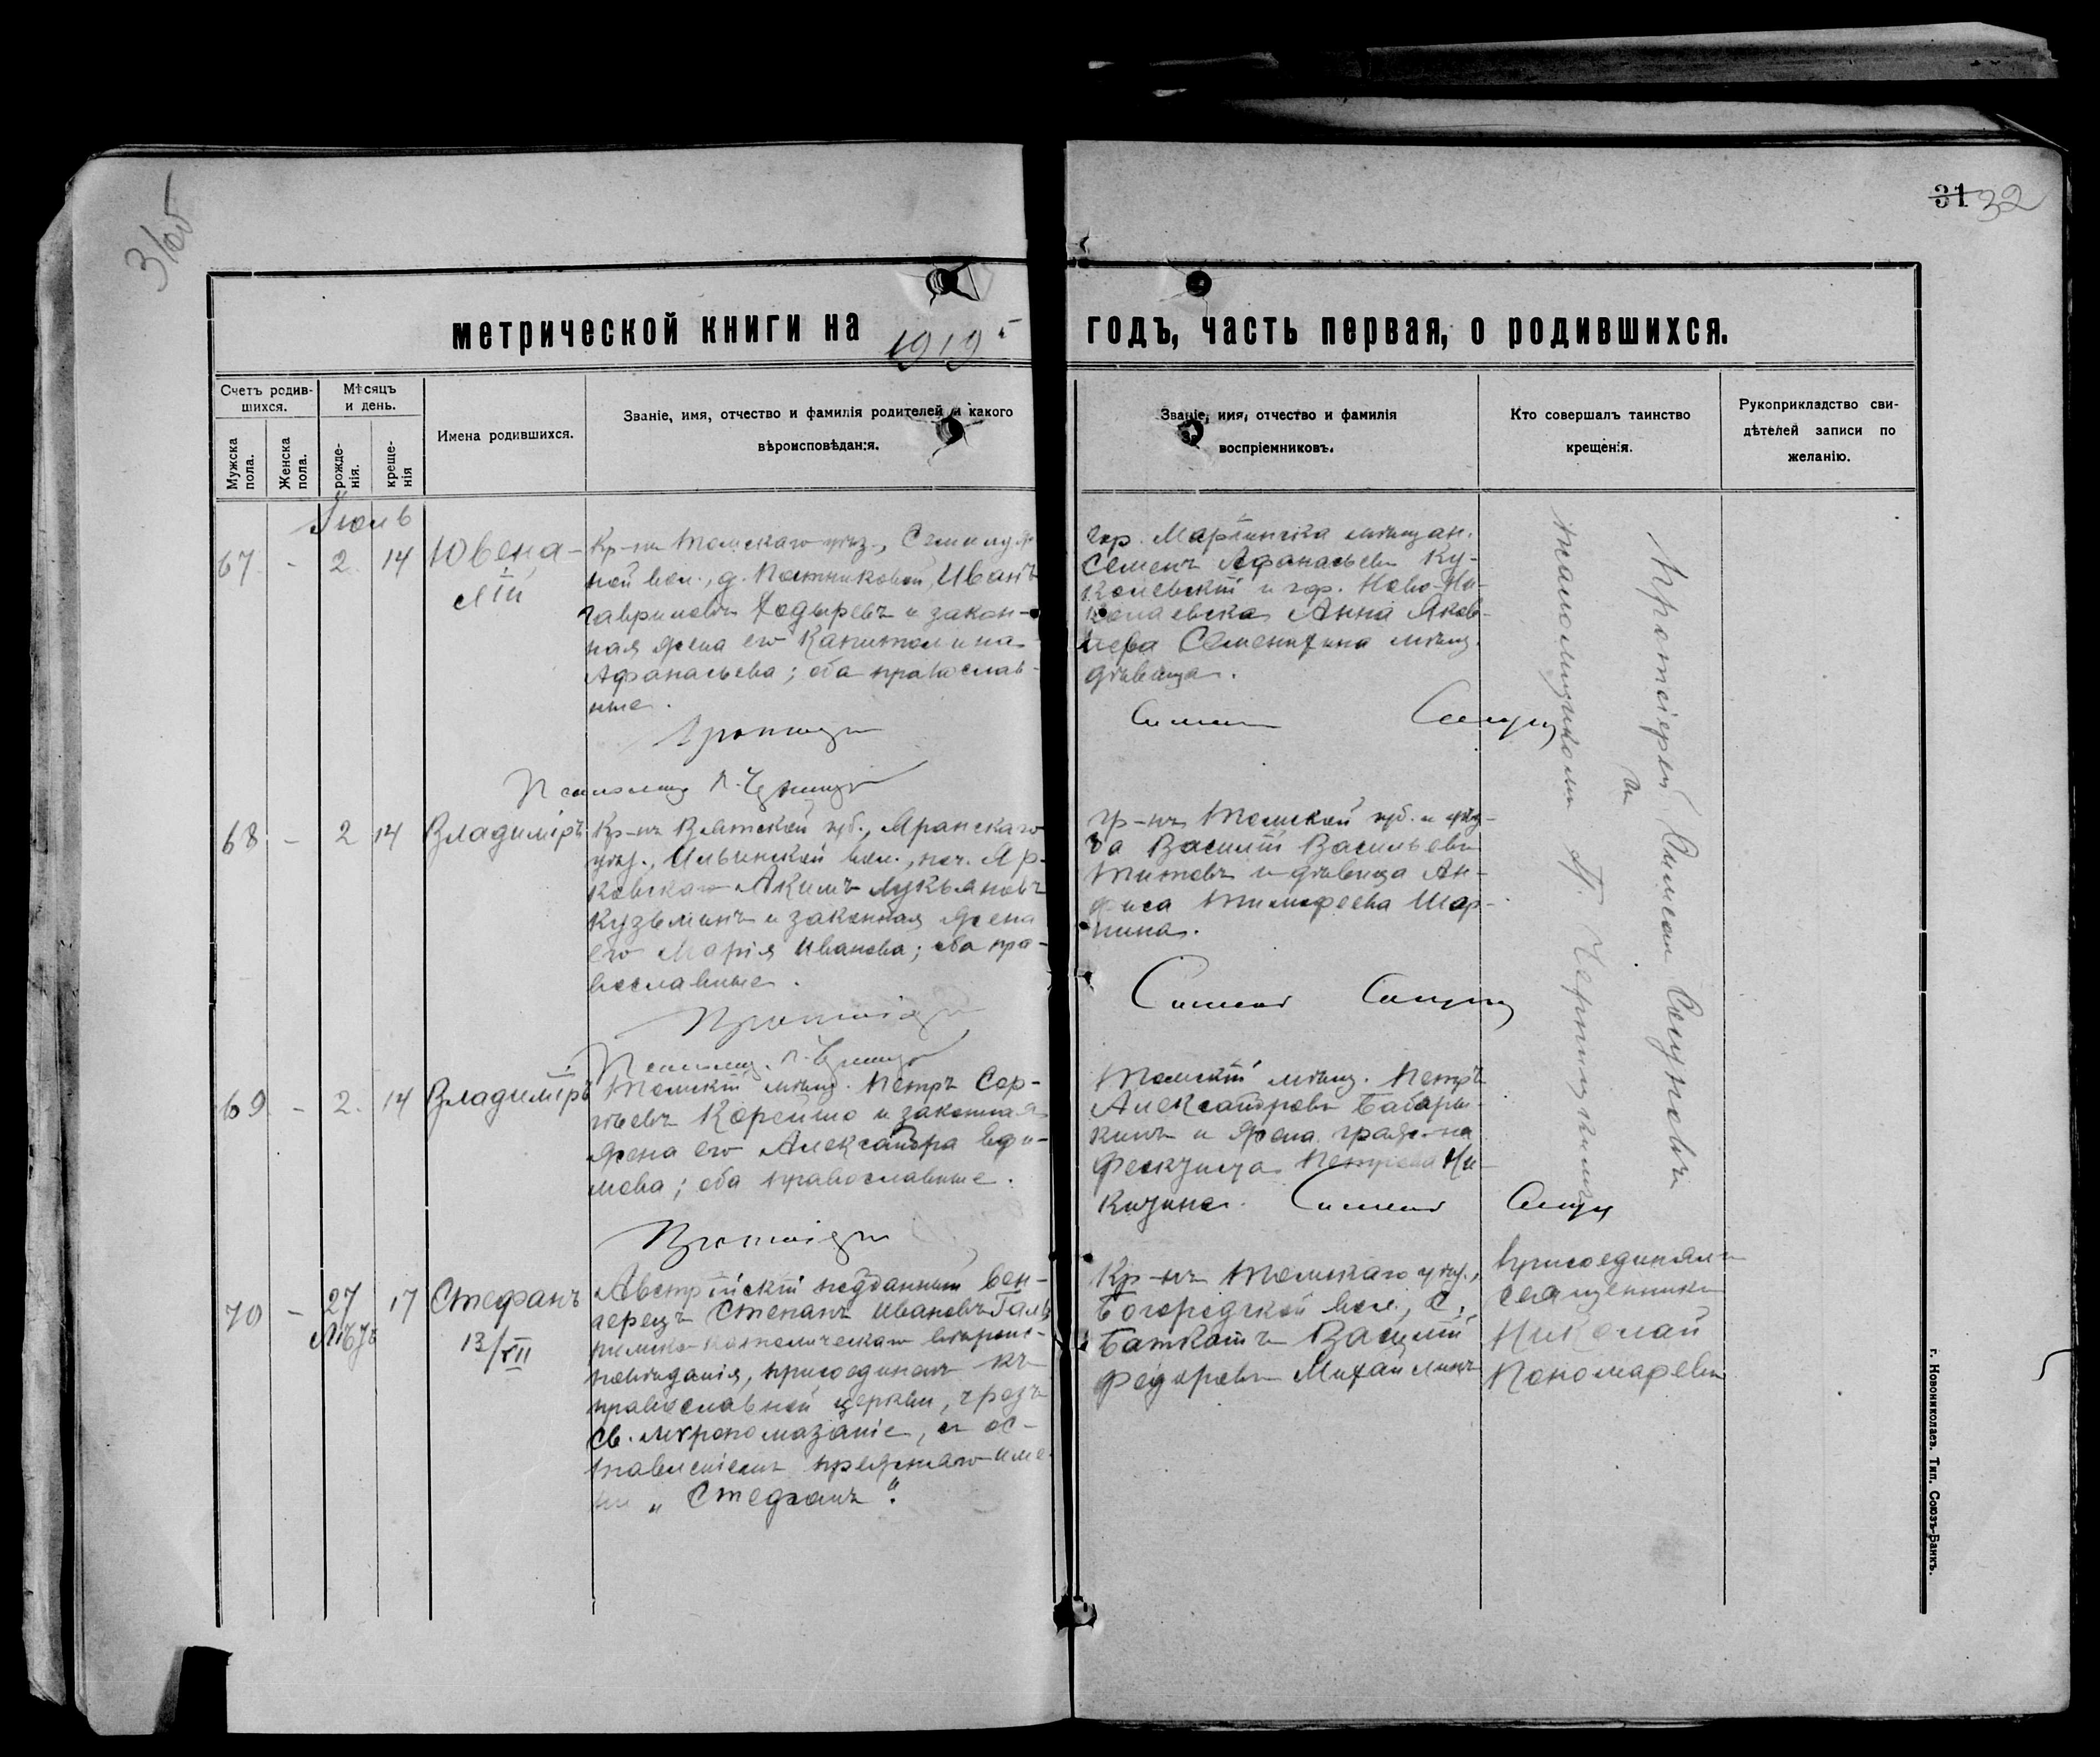 31 32
метрической книги на 1919
годъ, часть первая, о родившихся.
Счетъ родив-
шихся.
Мужска
пола.
Женска
пола.
Мѣсяцъ
и день.
рожде-
нія.
креще-
нія
Имена родившихся.
Званіе, имя, отчество и фамилія родителей и какого
вѣроисповѣданія.
Званіе, имя, отчество и фамилія
воспріемниковъ.
Кто совершалъ таинство
крещенія.
Рукоприкладство сви-
дѣтелей записи по
желанію.
Іюль
67 - 2 14 Ювена-
лій
Кр-нъ Томскаго уѣзд.,
ной вол., д. Иванъ
Гавриловъ и закон-
ная жена его Капитолина
Афанасьева; оба православ-
ные.
гор. Маріинска мѣщан.
Семенъ Афанасьевъ Ку-
и гр. Ново-Ни-
колаевска Анна Яков-
лева мѣщ.
дѣвица.
68 - 2 14 Владиміръ
Кр-нъ Вятской губ., Яранскаго
уѣзд., Ильинской вол., поч. Яр-
ковскаго Акимъ Лукьяновъ
Кузьминъ и законная жена
его Марія Иванова; оба пра-
вославные.
гр-нъ Томской губ. и уѣз-
да Василій Васильевъ
Титовъ и дѣвица Ан-
фиса Тимофеева Шар-
нина.
69 - 2. 14 Владиміръ
Томскій мѣщ. Петръ Сер-
гѣевъ и законная
жена его Александра Ефи-
мова; оба православные.
Томскій мѣщ. Петръ
Александровъ Бабары-
кинъ и жена граж-на
Петрова Ни-
кицина.
70 - 27 17 Стефанъ
13/VII
Австрійскій подданный вен-
герецъ Степанъ Ивановъ
римско-католическаго вѣроис-
повѣданія, присоединенъ къ
православной церкви, чрезъ
св. мѵропомазаніе, съ ос-
тавленіемъ прежняго име-
ни „Стефанъ“.
Кр-нъ Томскаго уѣзд.,
Богородской вол., с.
Баткатъ Василій
Федоровъ Михайлинъ
присоединялъ
священникъ
Николай
Пономаревъ
Протоіерей Симеонъ Сосуновъ
и
псаломщикомъ П. Черницкимъ
г. Новониколаев. Тип. Союзъ-Банкъ.